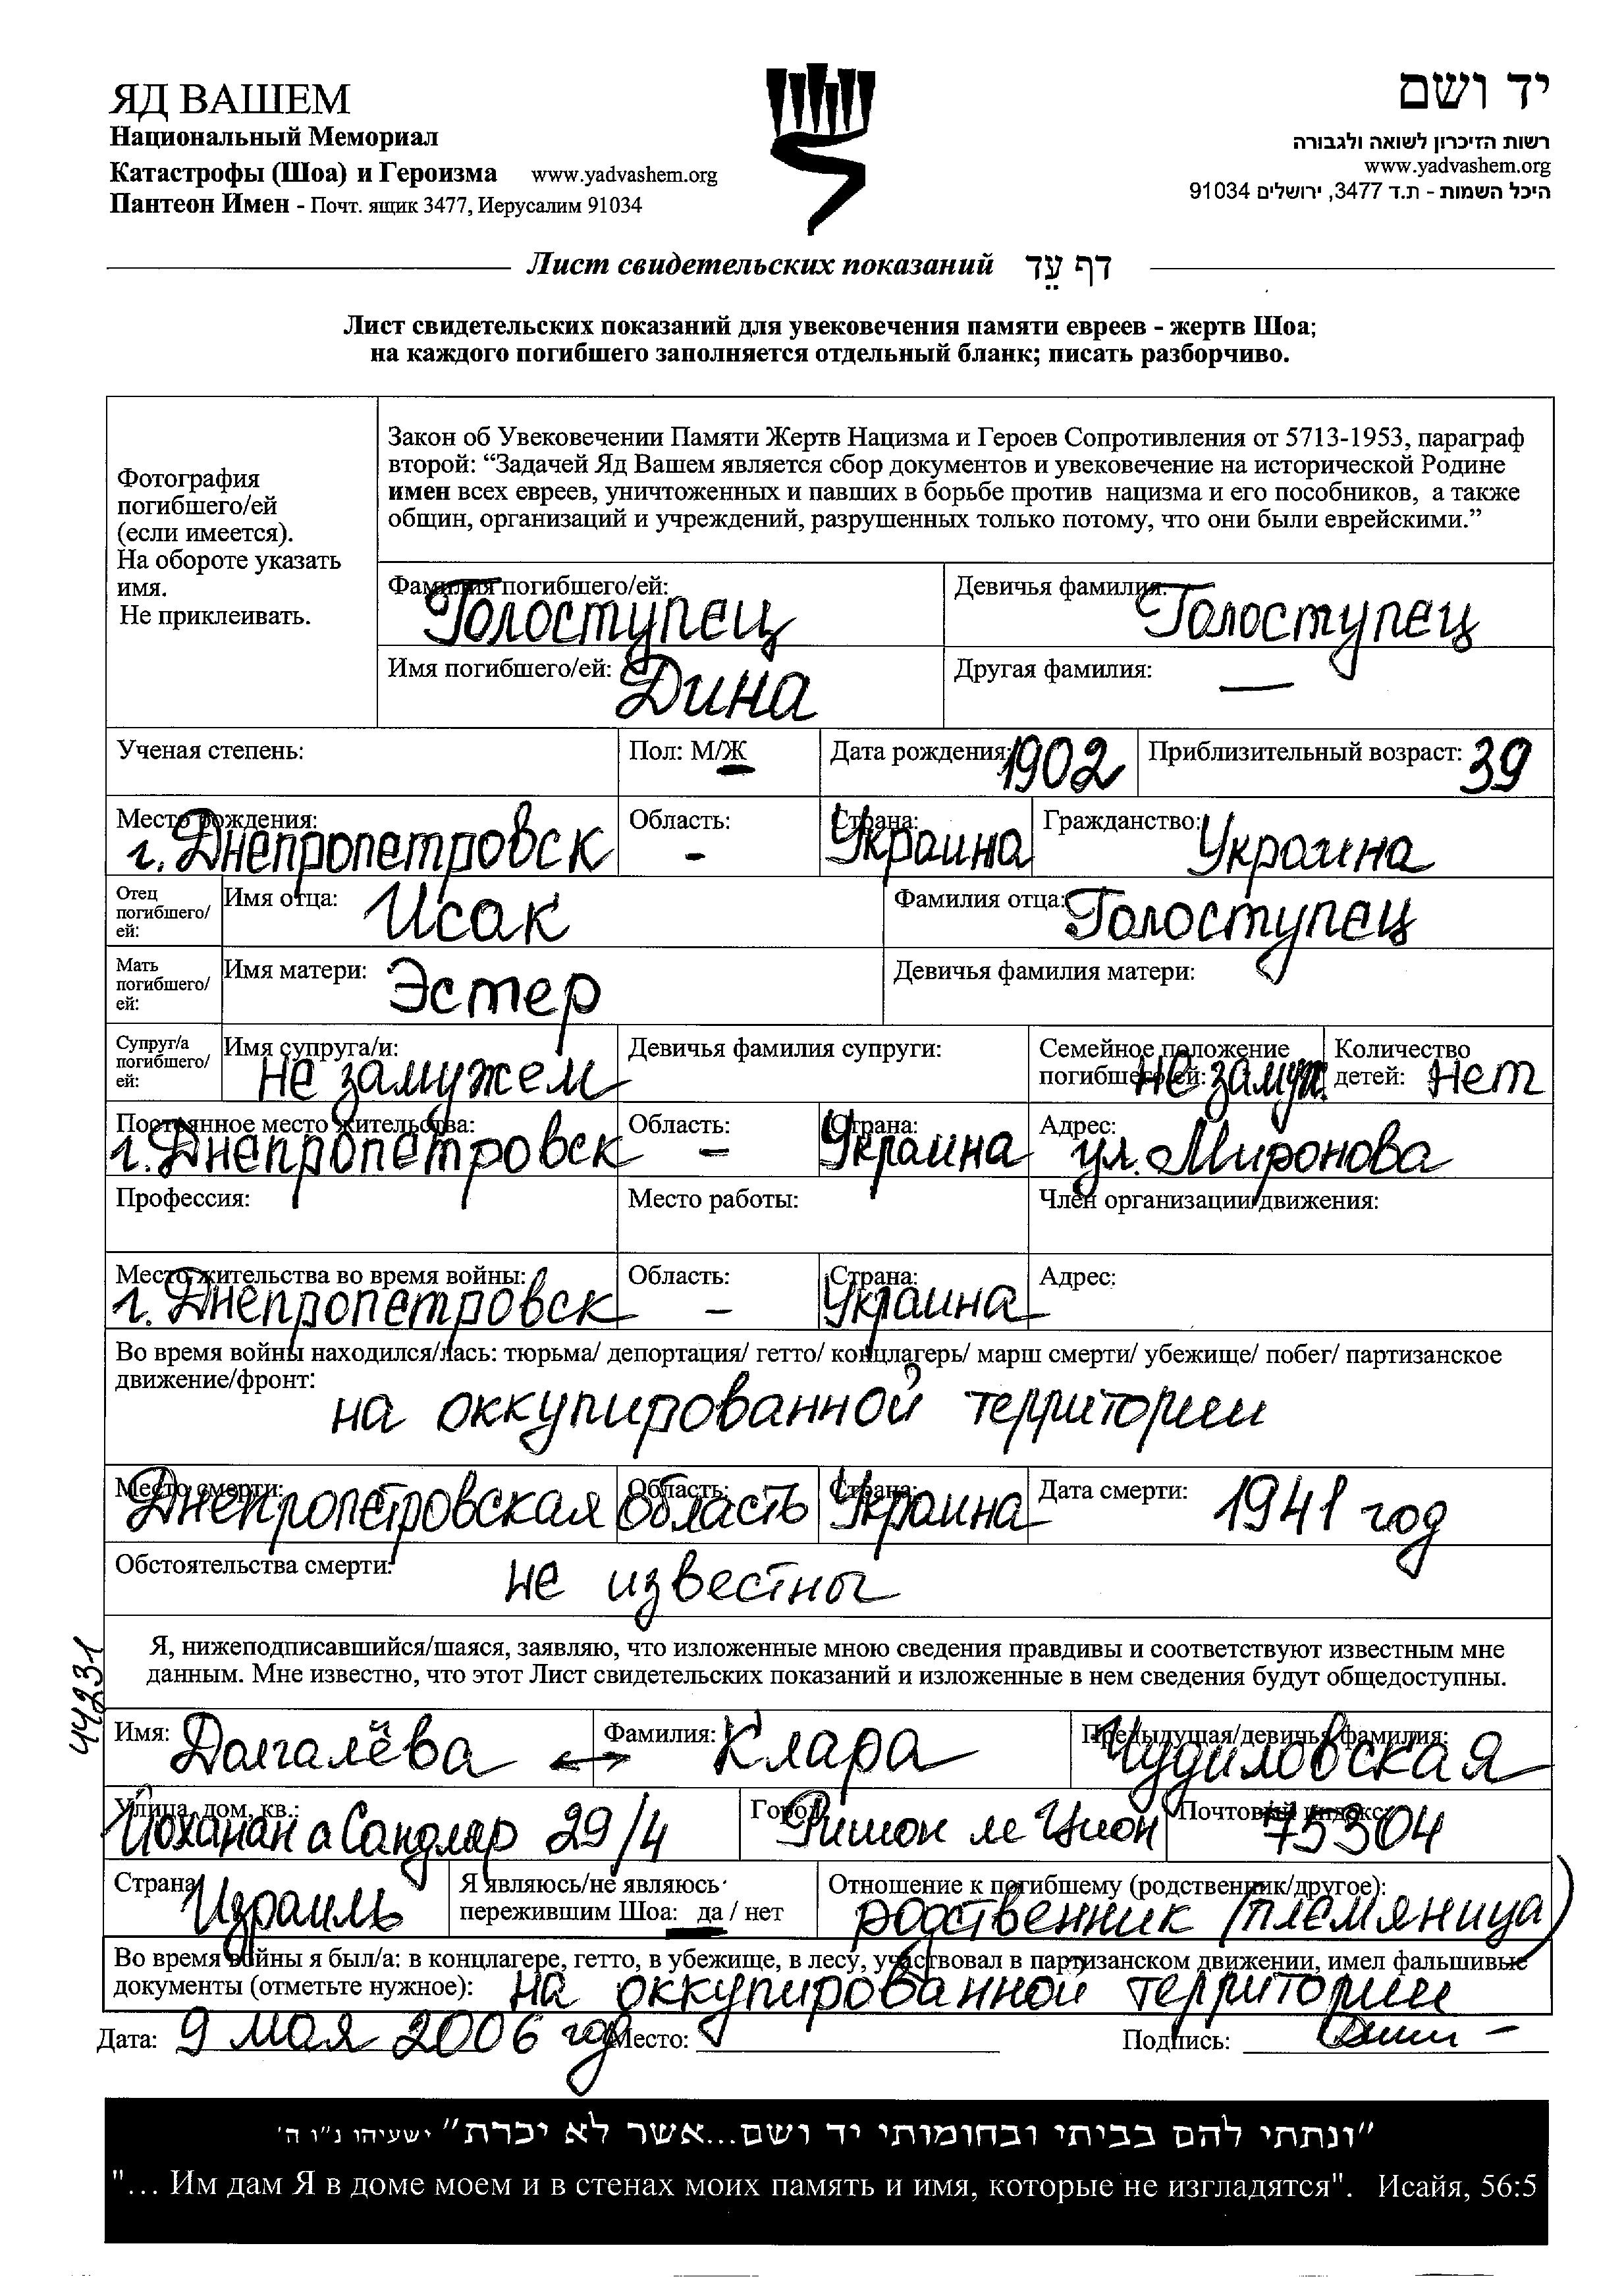 ЯД ВАШЕМ
Национальный Мемориал
Катастрофы (Шоа) и Героизма www.yadvashem.org
Пантеон Имен - Почт. ящик 3477, Иерусалим 91034
יד ושם
רשות הזיכרון לשואה ולגבורה
www.yadvashem.org
היכל השמות - ת.ד 3477, ירושלים 91034
Лист свидетельских показаний דף עֵד
Лист свидетельских показаний для увековечения памяти евреев - жертв Шоа;
на каждого погибшего заполняется отдельный бланк; писать разборчиво.
Фотография
погибшего/ей
(если имеется).
На обороте указать
имя.
Не приклеивать.
Закон об Увековечении Памяти Жертв Нацизма и Героев Сопротивления от 5713-1953, параграф
второй: “Задачей Яд Вашем является сбор документов и увековечение на исторической Родине
имен всех евреев, уничтоженных и павших в борьбе против нацизма и его пособников, а также
общин, организаций и учреждений, разрушенных только потому, что они были еврейскими.”
Фамилия погибшего/ей: Голоступец
Девичья фамилия: Голоступец
Имя погибшего/ей: Дина
Другая фамилия: —
Ученая степень:
Пол: М/Ж
Дата рождения: 1902
Приблизительный возраст: 39
Место рождения: г. Днепропетровск
Область: -
Страна: Украина
Гражданство: Украина
Отец
погибшего/
ей:
Имя отца: Исак
Фамилия отца: Голоступец
Мать
погибшего/
ей:
Имя матери: Эстер
Девичья фамилия матери:
Супруг/а
погибшего/
ей:
Имя супруга/и: не замужем
Девичья фамилия супруги:
Семейное положение
погибшего/ей: не замуж.
Количество
детей: нет
Постоянное место жительства: г. Днепропетровск
Область: -
Страна: Украина
Адрес: ул. Миронова
Профессия:
Место работы:
Член организации/движения:
Место жительства во время войны: г. Днепропетровск
Область: -
Страна: Украина
Адрес:
Во время войны находился/лась: тюрьма/ депортация/ гетто/ концлагерь/ марш смерти/ убежище/ побег/ партизанское
движение/фронт: на оккупированной территории
Место смерти: Днепропетровская
Область: область
Страна: Украина
Дата смерти: 1941 год
Обстоятельства смерти: не известны
Я, нижеподписавшийся/шаяся, заявляю, что изложенные мною сведения правдивы и соответствуют известным мне
данным. Мне известно, что этот Лист свидетельских показаний и изложенные в нем сведения будут общедоступны.
44231
Имя: Долгалёва ↔
Фамилия: Клара
Предыдущая/девичья фамилия: Чудиловская
Улица, дом, кв.: Йоханан а Сандлар 29/4
Город: Ришон ле Цион
Почтовый индекс: 75304
Страна: Израиль
Я являюсь/не являюсь
пережившим Шоа: да / нет
Отношение к погибшему (родственник/другое):
родственник (племяница)
Во время войны я был/а: в концлагере, гетто, в убежище, в лесу, участвовал в партизанском движении, имел фальшивые
документы (отметьте нужное): на оккупированной территории
Дата: 9 мая 2006 год Место: Подпись:
"ונתתי להם בביתי ובחומותי יד ושם...אשר לא יכרת" ישעיהו נ"ו ה'
"... Им дам Я в доме моем и в стенах моих память и имя, которые не изгладятся". Исайя, 56:5